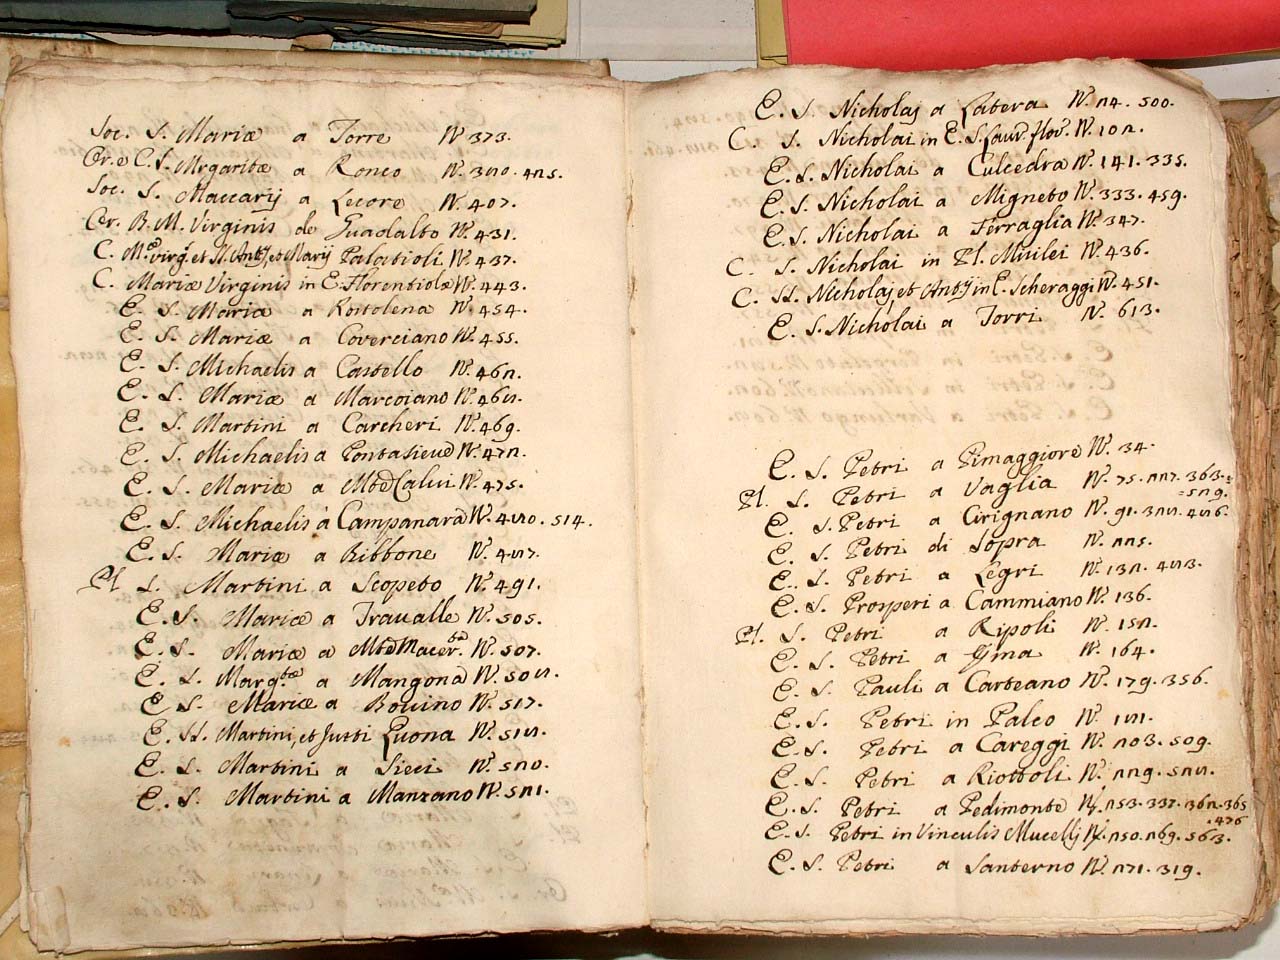 Soc. S. Mariæ a Torre Nº 373.
Cor. e C. S. Mrgaritæ a Ronco Nº. 380. 425.
Soc. S. Maccarij a Lecore Nº 407.
Cor. B. M. Virginis de Guadalto Nº 431.
C. Mª virgˢ. et S. Antij, et Marij Palatioli. Nº. 437.
C. Mariæ Virginis in E. Florentiolæ Nº. 443.
E. S. Mariæ a Rostolena Nº 454.
E. S. Mariæ a Coverciano Nº. 455.
E. S. Michaelis a Castello Nº. 462.
E. S. Mariæ a Marcoiano Nº. 468.
E. S. Martini a Carcheri Nº. 469.
E. S. Michaelis a Pontasieve Nº. 472.
E. S. Mariæ a Mte Calvi Nº. 475.
E. S. Michaelis a Campanara Nº. 480. 514.
E. S. Mariæ a Ribbone Nº. 487.
Pl S. Martini a Scopeto Nº. 491.
E. S. Mariæ a Travalle Nº. 505.
E. S. Mariæ a Mte Macerta. Nº. 507.
E. S. Margtæ a Mangona Nº. 508.
E. S. Mariæ a Bovino Nº. 517.
E. SS. Martini, et Justi Luona Nº. 518.
E. S. Martini a Sieci Nº. 520.
E. S. Martini a Manzano Nº. 521.
E. S. Nicholaj a Latera Nº. 24. 500.
C. S. Nicholai in E. S. Laurº. florº. Nº. 102.
E. S. Nicholai a Culcedra Nº. 141. 335.
E. S. Nicholai a Migneto Nº. 333. 459.
E. S. Nicholai a Ferraglia Nº. 347.
C. S. Nicholai in Pl. Mivilei Nº. 436.
C. SS. Nicholaj, et Antij in E. Scheraggi Nº. 451.
E. S. Nicholai a Torri Nº. 613.
E. S. Petri a Pimaggiore Nº. 34.
Pl. S. Petri a Vaglia Nº. 75. 227. 363.=
=529.
E. S. Petri a Cirignano Nº. 91. 328. 486.
E. S. Petri di Sopra Nº. 225.
E. S. Petri a Legri Nº. 132. 483.
E. S. Prosperi a Cammiano Nº. 136.
Pl. S. Petri a Ripoli Nº. 152.
E. S. Petri a Yma Nº. 164.
E. S. Pauli a Carteano Nº. 179. 356.
E. S. Petri in Palco Nº. 181.
E. S. Petri a Careggi Nº. 203. 509.
E. S. Petri a Riottoli Nº. 229. 528.
E. S. Petri a Pedimonte Nº. 253. 337. 362. 365
.476
E. S. Petri in Vinculis Mucellj Nº. 250. 269. 563.
E. S. Petri a Santerno Nº. 271. 319.